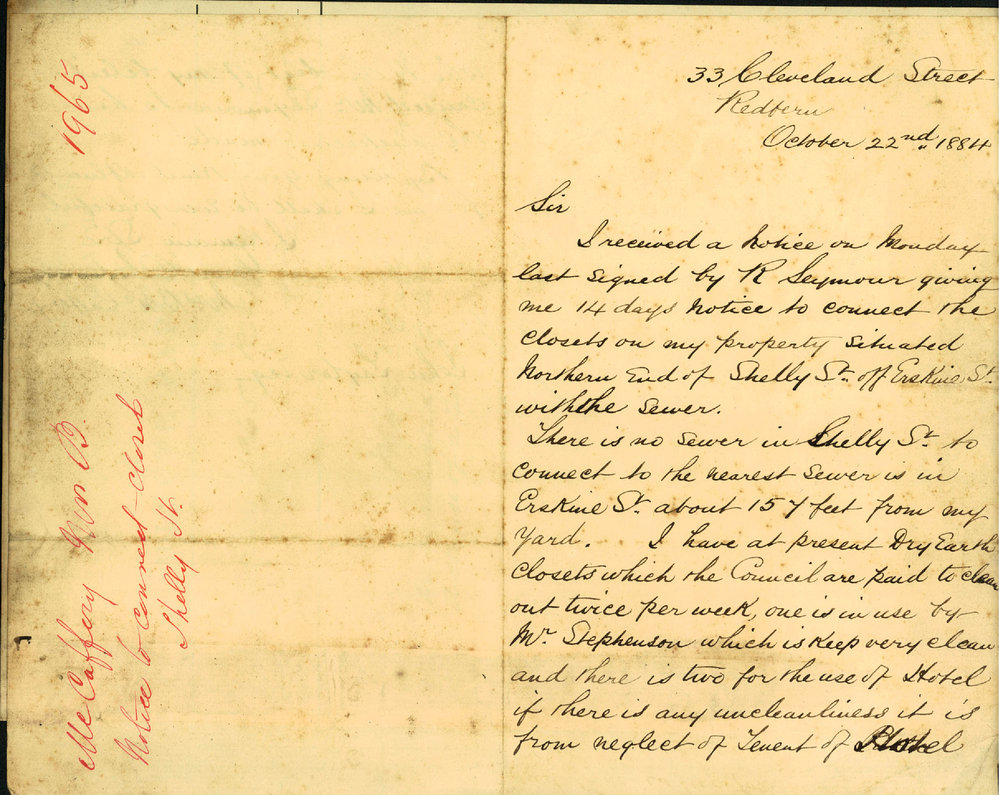 1965
McCaffary Wm B.
Notice to connect closet
Shelly St.
33 Cleveland Street
Redfern
October 22nd, 1884
Sir
I received a Notice on Monday
last signed by R Seymour giving
me 14 days Notice to connect the
closets on my property situated
Northern End of Shelly St. off Erskine St.
with the sewer.
There is no sewer in Shelly St. to
connect to the nearest sewer is in
Erskine St. about 157 feet from my
yard. I have at present Dry Earth
closets which the Council are paid to clean
out twice per week, one is in use by
Mr Stephenson which is keep very clean
and there is two for the use of Hotel
if there is any uncleanliness it is
from neglect of Tenent of Hotel